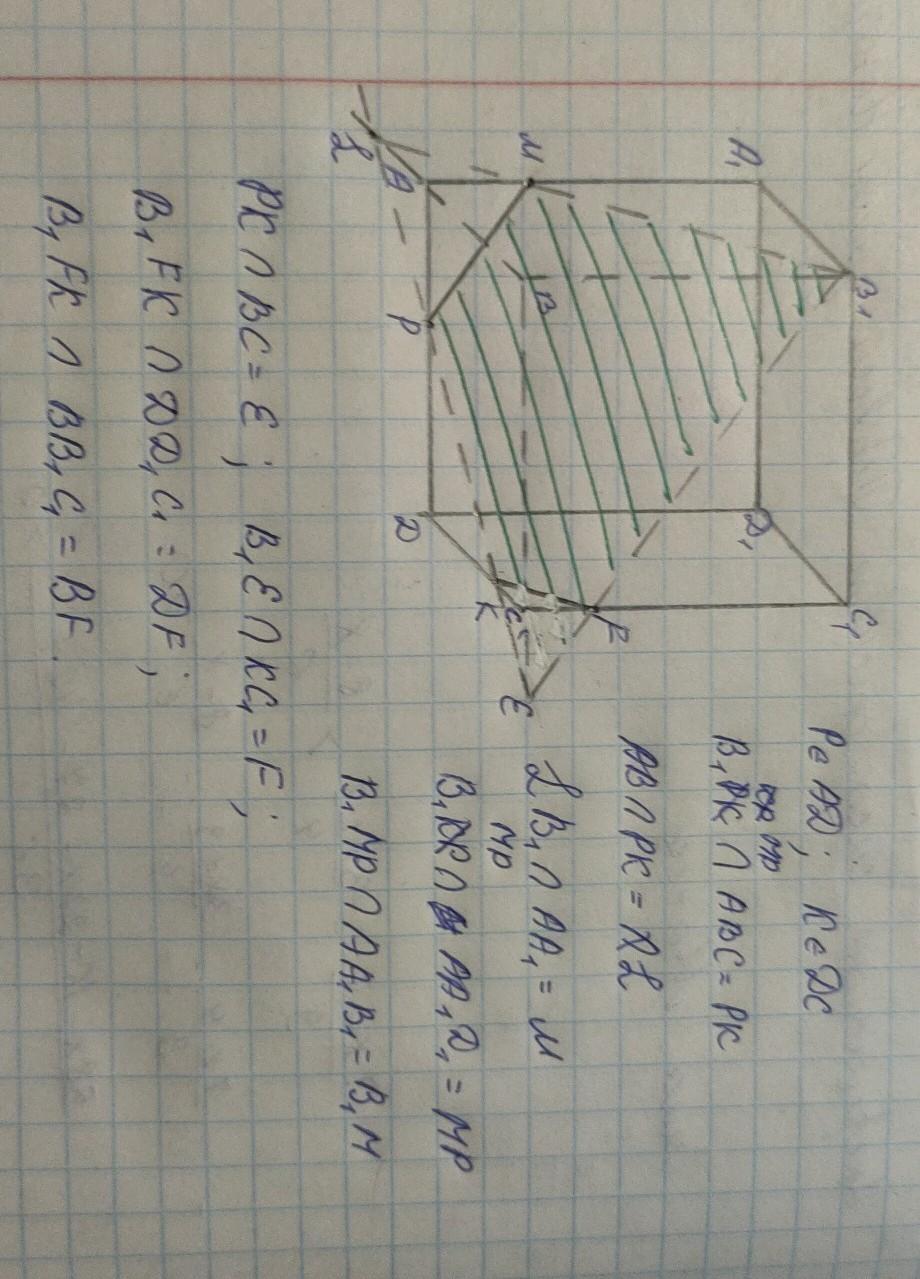 A₁
B₁
C₁
D₁
M
B
A
P
D
K
C
E
F
L
P ∈ AD; K ∈ DC
B₁PK ∩ ABC = PK
AB ∩ PK = L
LB₁ ∩ AA₁ = M
B₁MP ∩ AA₁D₁ = MP
B₁MP ∩ AA₁B₁ = B₁M
PK ∩ BC = E; B₁E ∩ KC₁ = F;
B₁FK ∩ DD₁C₁ = DF;
B₁FK ∩ BB₁C₁ = BF.